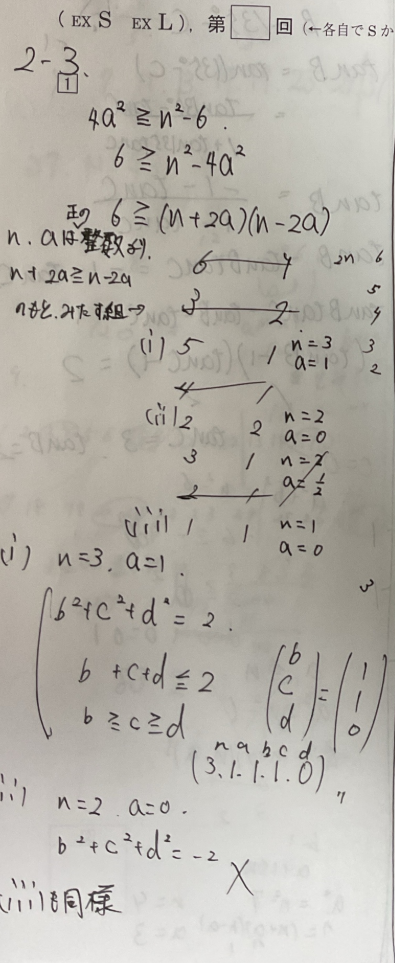 (EX S EX L), 第 回 (←各自で S か
2-3.
1
4a² ≧ n²-6.
6 ≧ n²-4a²
6 ≧ (n+2a)(n-2a)
n. aは正の整数より.
n+2a≧n-2a
のもと、みたす組→
6 1 2n 6
3 2 5 4
(i) 5 1 n=3 a=1 3 2
4 1
(ii) 2 2 n=2 a=0
3 1 n=2 a=1/2
2 1
(iii) 1 1 n=1 a=0
(i) n=3. a=1.
3
b²+c²+d²=2.
b+c+d≦2
b≧c≧d
(b c d)=(1 1 0)
n a b c d
(3.1.1.1.0)〃
(ii) n=2 a=0.
b²+c²+d²=-2 ×
(iii)も同様